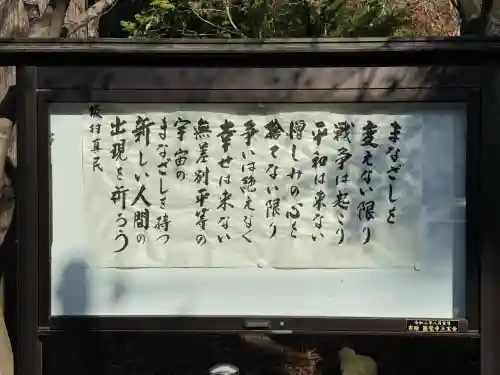 まなざしを
変えない限り
戦争は起こり
平和は来ない
憎しみの心を
捨てない限り
争いは絶えなく
幸せは来ない
無差別平等の
宇宙の
まなざしを持つ
新しい人間の
出現を祈ろう
坂村真民